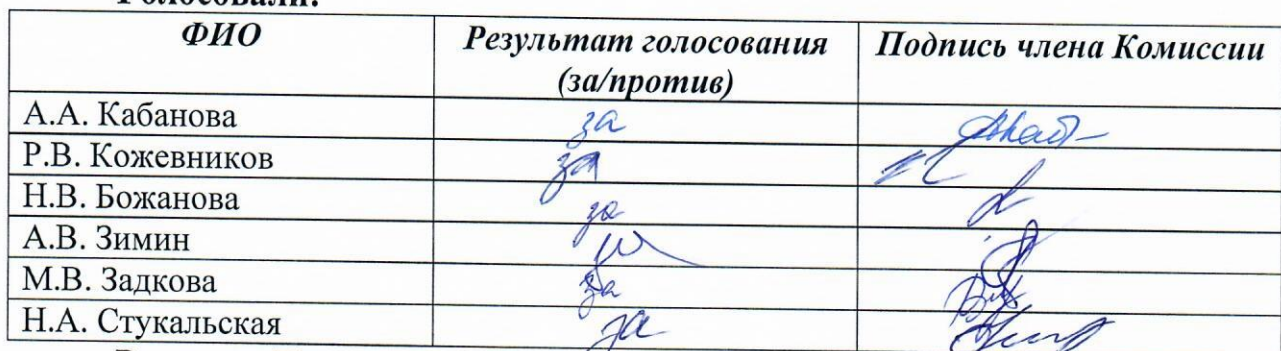 Голосовали:
ФИО Результат голосования (за/против) Подпись члена Комиссии
А.А. Кабанова за
Р.В. Кожевников за
Н.В. Божанова за
А.В. Зимин
М.В. Задкова за
Н.А. Стукальская за